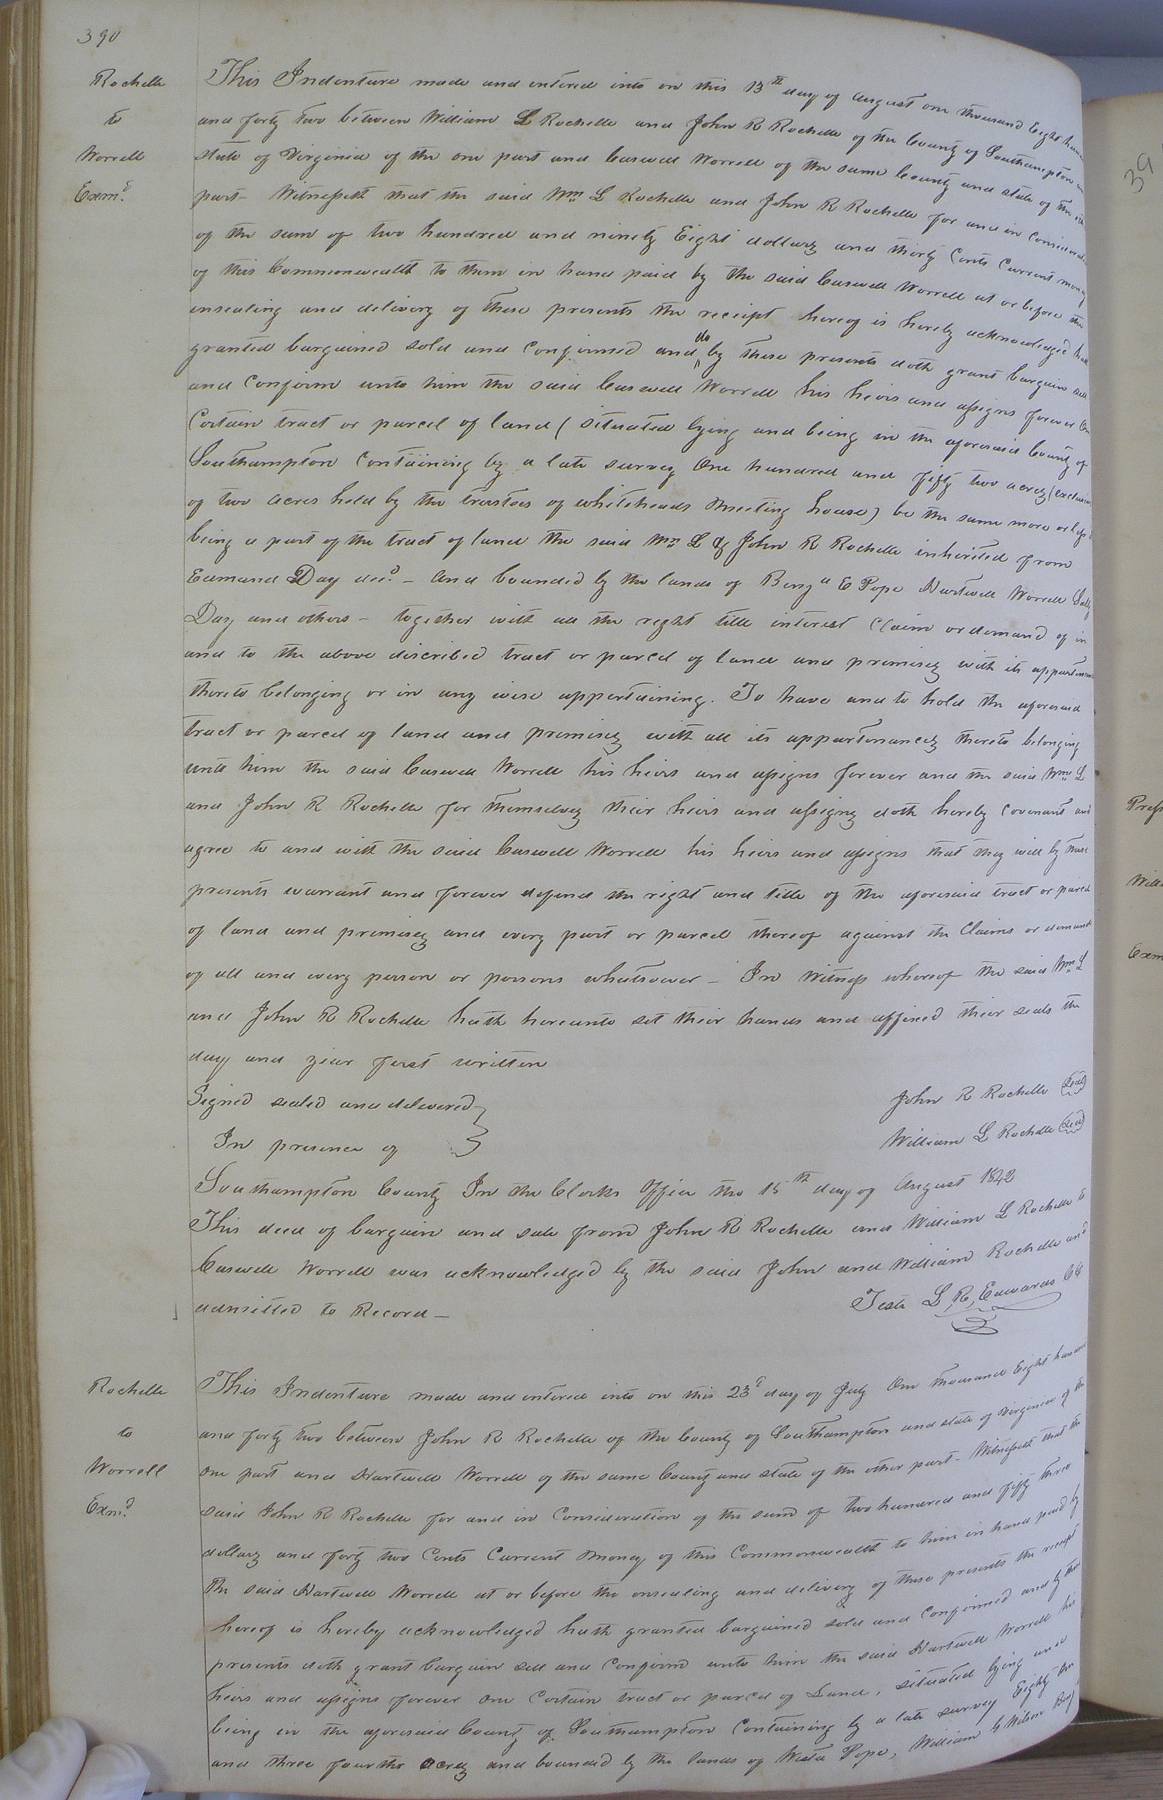 390
Rochelle
to
Worrell
Exmd.
This Indenture made and entered into on this 13th day of August one thousand Eight hun
and forty two between William L Rochelle and John R Rochelle of the County of Southampton
state of Virginia of the one part and Caswell Worrell of the same County and state of the
part - Witnesseth that the said Wm L Rochelle and John R Rochelle for and in Considerat
of the sum of two hundred and ninety Eight dollars and thirty Cents Current money
of this Commonwealth to them in hand paid by the said Caswell Worrell at or before the
ensealing and delivery of these presents the receipt hereof is hereby acknowledged hath
granted bargained sold and Confirmed and do by these presents doth grant bargain sell
and Confirm unto him the said Caswell Worrell his heirs and assigns forever One
Certain tract or parcel of land (situated lying and being in the aforesaid County of
Southampton Containing by a late survey One hundred and fifty two acres (exclusive
of two acres held by the trustees of whiteheads Meeting house) be the same more or less
being a part of the tract of land the said Wm L & John R Rochelle inherited from
Edmund Day decd. - And bounded by the lands of Benja E Pope Hartwell Worrell Sally
Day and others - together with all the right title interest Claim or demand of in
and to the above discribed tract or parcel of land and premises with its appurtenances
thereto belonging or in any wise appertaining. To have and to hold the aforesaid
tract or parcel of land and premises with all its appurtenances thereto belonging
unto him the said Caswell Worrell his heirs and assigns forever and the said Wm L
and John R Rochelle for themselves their heirs and assigns doth hereby Covenant and
agree to and with the said Caswell Worrell his heirs and assigns that they will by these
presents warrant and forever defend the right and title of the aforesaid tract or parcel
of land and premises and every part or parcel thereof against the Claims or demands
of all and every person or persons whatsoever - In Witness whereof the said Wm L
and John R Rochelle hath hereunto set their hands and affixed their seals the
day and year first written
Signed sealed and delivered
In presence of
John R Rochelle (Seal)
William L Rochelle (Seal)
Southampton County In the Clerks Office the 15th day of August 1842
This deed of bargain and sale from John R Rochelle and William L Rochelle to
Caswell Worrell was acknowledged by the said John and William Rochelle and
admitted to Record -
Teste L. R. Edwards CC
Rochelle
to
Worrell
Exmd.
This Indenture made and entered into on this 23d day of July One thousand Eight hundred
and forty two between John R Rochelle of the County of Southampton and state of Virginia of the
one part and Hartwell Worrell of the same County and state of the other part - Witnesseth that the
said John R Rochelle for and in Consideration of the sum of two hundred and fifty three
dollars and forty two Cents Current money of this Commonwealth to him in hand paid by
The said Hartwell Worrell at or before the ensealing and delivery of these presents the receipt
hereof is hereby acknowledged hath granted bargained sold and Confirmed and by these
presents doth grant bargain sell and Confirm unto him the said Hartwell Worrell his
heirs and assigns forever One Certain tract or parcel of Land, situated lying and
being in the aforesaid County of Southampton Containing by a late survey Eighty
and three fourths Acres and bounded by the lands of Pope, William G Wilson Benj